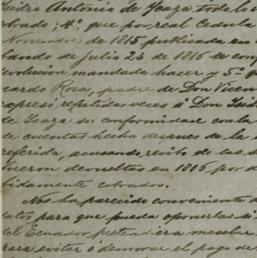 Isidro Antonio de Icaza, todo lo
obrado; 4º que por real Cedula
Noviembre de 1815 publicada en
bando de Julio 23 de 1816 se con
evolucion mandada hacer y 5º q
cardo Roca, padre de Don Vicen
expresó repetidas veces á Don Luis
de Icaza su conformidad con la
de cuentas hecha despues de la
referida, acusando recibo de las
fueron devueltas en 1816 por
bidamente cobrados.
Nos ha parecido conveniente
datos para que pueda oponerlas si
del Ecuador pretendiera mezclar
para evitar ó demorar el pago de